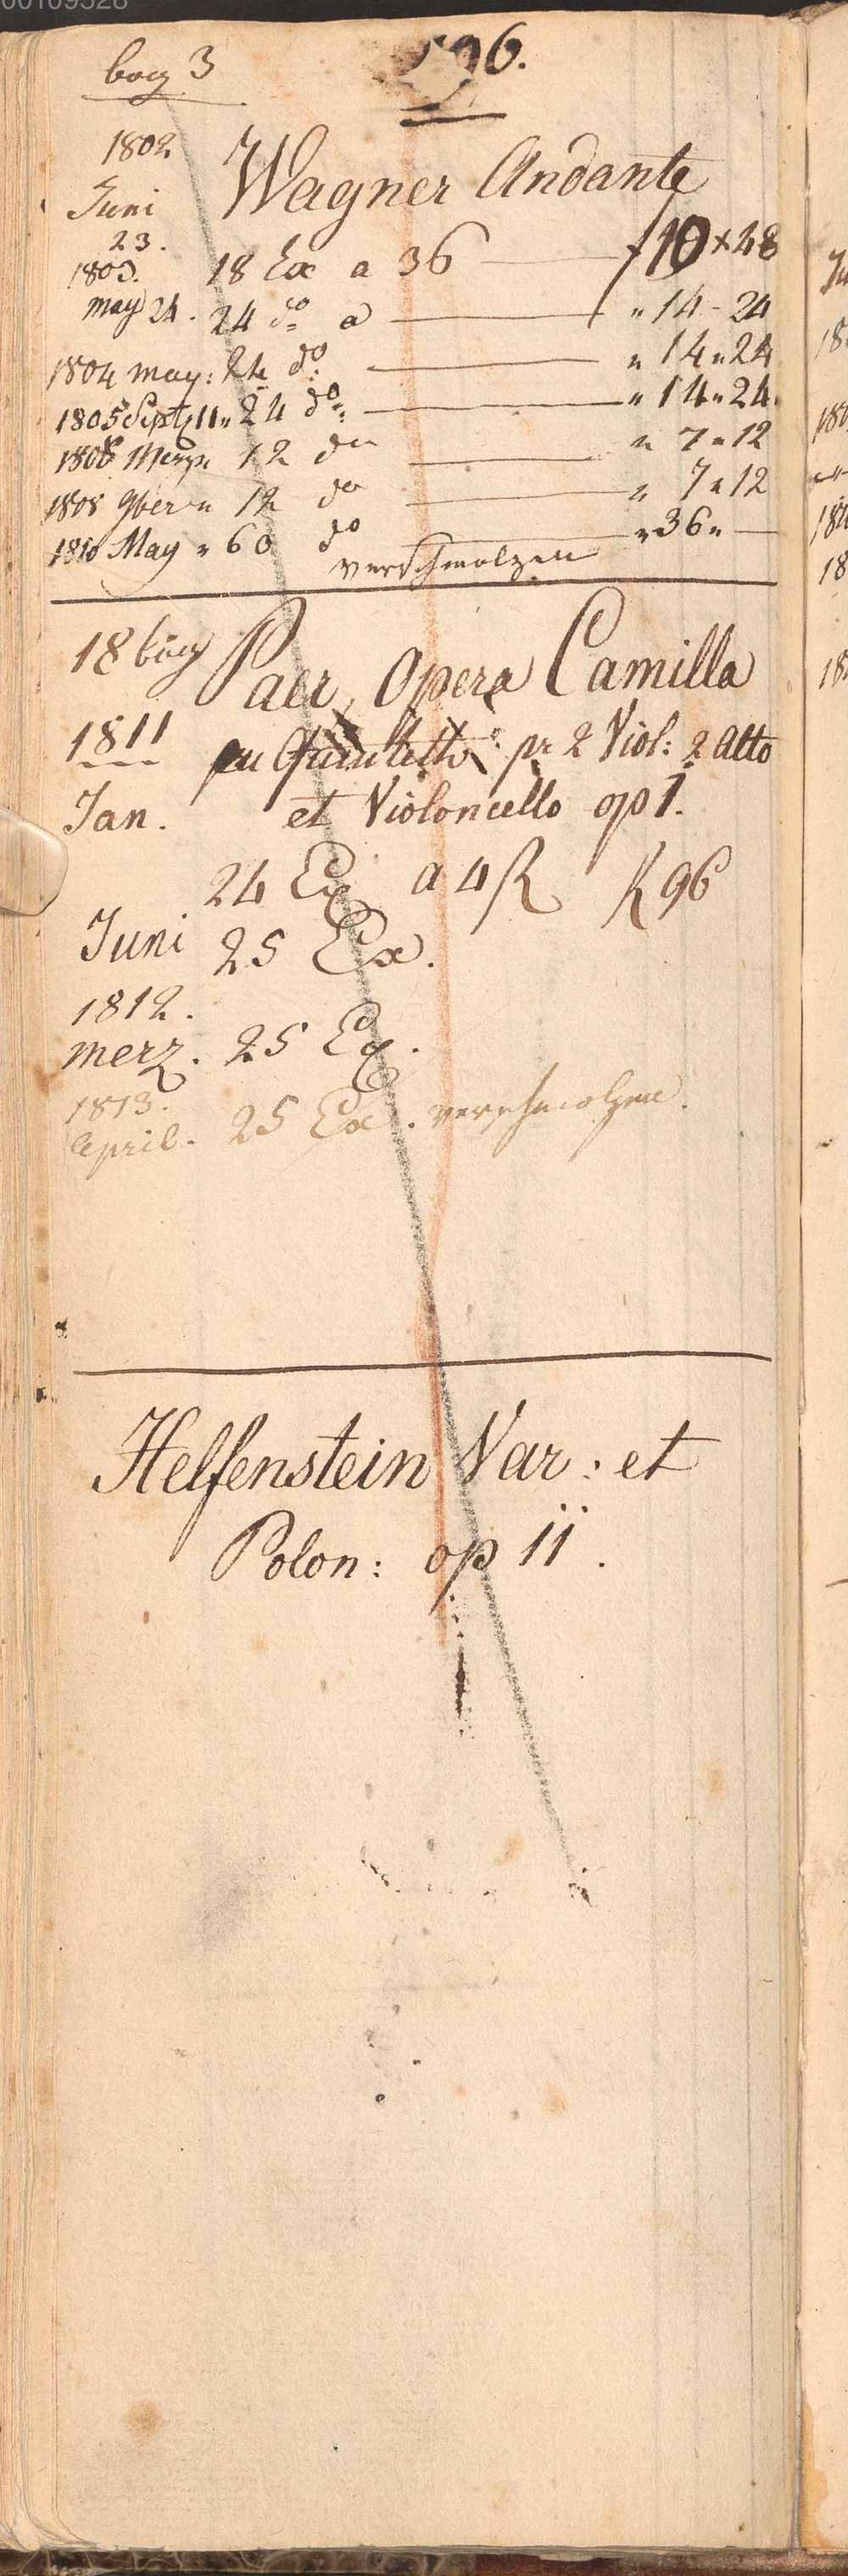 bog 3
96.
1802 Wagner Andante
Juni
23. 18 Ex a 36 — f 10 x 48
1803.
may 24. 24 do a — " 14 - 24
1804 may: 24 do: — " 14 " 24
1805 Sept 11 " 24 do: — " 14 " 24
1808 Merz 12 do — " 7 " 12
1808 9ber " 12 do — " 7 " 12
1810 May " 60 do — " 36 " —
verschmolzen
18 bog Paer, Opera Camilla
1811 en Quintetto pr 2 Viol: 2 Alto
Jan. et Violoncello op 1.
24 Ex a 4 R R 96
Juni 25 Ex.
1812.
merz. 25 Ex.
1813.
April. 25 Ex. verschmolzen.
Helfenstein Var: et
Polon: op 11.